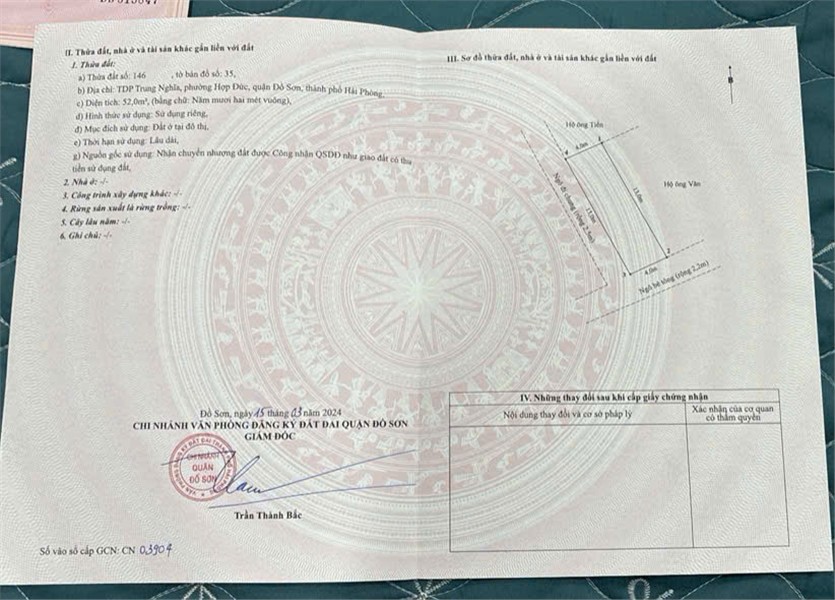 II. Thửa đất, nhà ở và tài sản khác gắn liền với đất
1. Thửa đất:
a) Thửa đất số: 146 , tờ bản đồ số: 35,
b) Địa chỉ: TDP Trung Nghĩa, phường Hợp Đức, quận Đồ Sơn, thành phố Hải Phòng,
c) Diện tích: 52,0m², (bằng chữ: Năm mươi hai mét vuông),
d) Hình thức sử dụng: Sử dụng riêng,
đ) Mục đích sử dụng: Đất ở tại đô thị,
e) Thời hạn sử dụng: Lâu dài,
g) Nguồn gốc sử dụng: Nhận chuyển nhượng đất được Công nhận QSDĐ như giao đất có thu
tiền sử dụng đất,
2. Nhà ở: -/-
3. Công trình xây dựng khác: -/-
4. Rừng sản xuất là rừng trồng: -/-
5. Cây lâu năm: -/-
6. Ghi chú: -/-
Đồ Sơn, ngày 15 tháng 03 năm 2024
CHI NHÁNH VĂN PHÒNG ĐĂNG KÝ ĐẤT ĐAI QUẬN ĐỒ SƠN
GIÁM ĐỐC
CHI NHÁNH
QUẬN
ĐỒ SƠN
Trần Thành Bắc
Số vào sổ cấp GCN: CN 03904
III. Sơ đồ thửa đất, nhà ở và tài sản khác gắn liền với đất
B
Hộ ông Tiến
4
4.0m
1
Ngõ đi chung (rộng 2.5m)
13.0m
13.0m
Hộ ông Văn
3
4.0m
2
Ngõ bê tông (rộng 2,2m)
IV. Những thay đổi sau khi cấp giấy chứng nhận
Nội dung thay đổi và cơ sở pháp lý
Xác nhận của cơ quan
có thẩm quyền